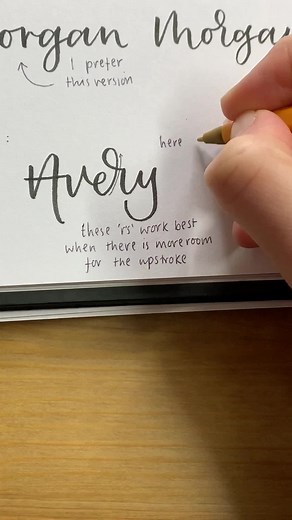 organ Morga
I prefer
this version
:
here
Avery
these 'rs' work best
when there is more room
for the upstroke